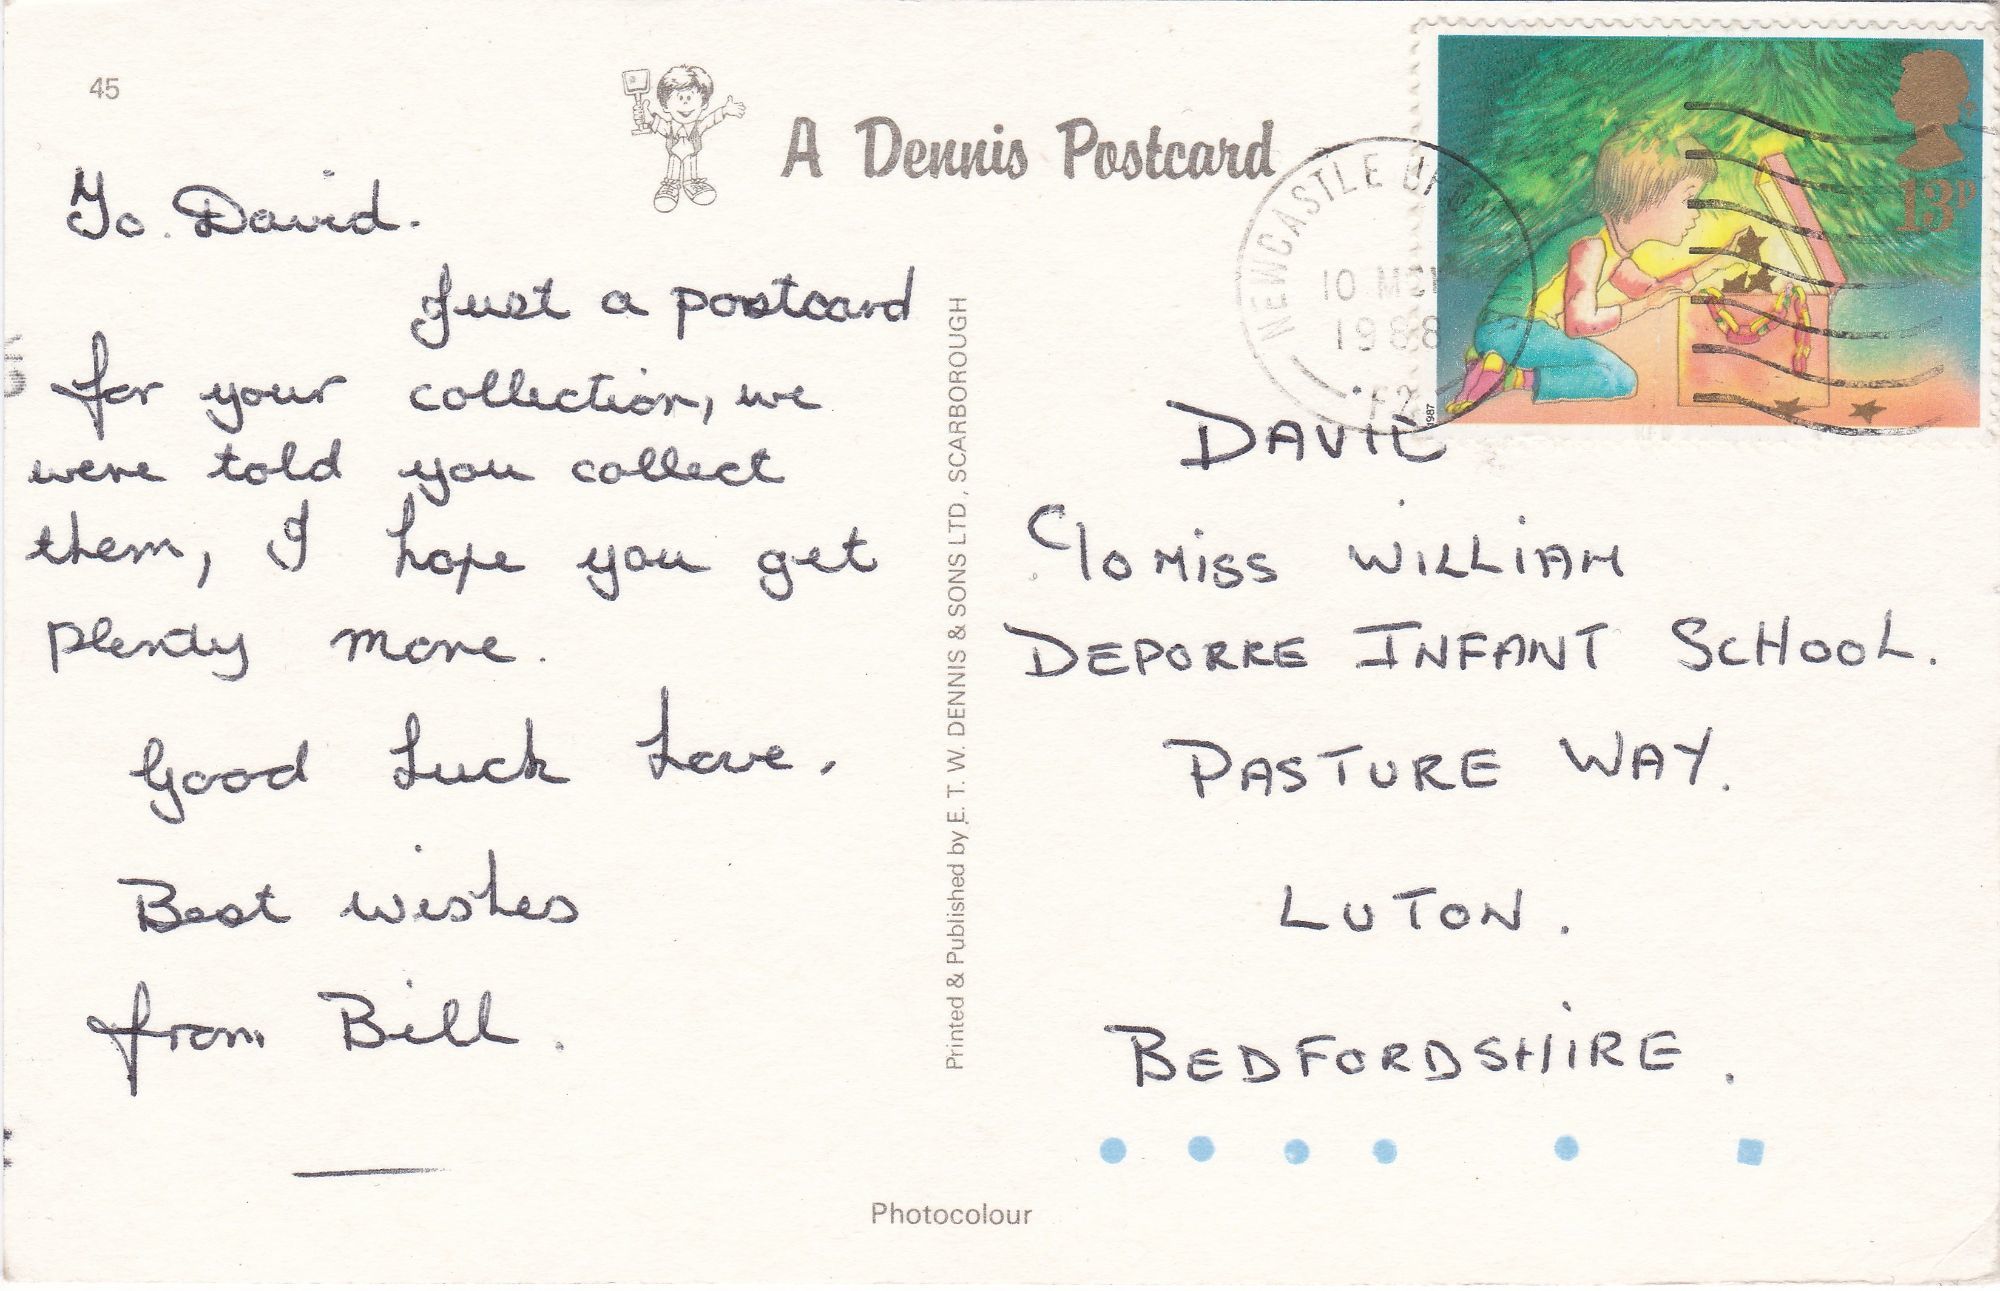 45
A Dennis Postcard
NEWCASTLE
10
1988
13P
1987
To David.
Just a postcard
for your collection, we
were told you collect
them, I hope you get
plenty more.
Good Luck Love.
Best wishes
from Bill.
Printed & Published by E. T. W. DENNIS & SONS LTD., SCARBOROUGH
DAVIE
C/o MISS WILLIAM
DEPORRE INFANT SCHOOL.
PASTURE WAY.
LUTON.
BEDFORDSHIRE.
Photocolour